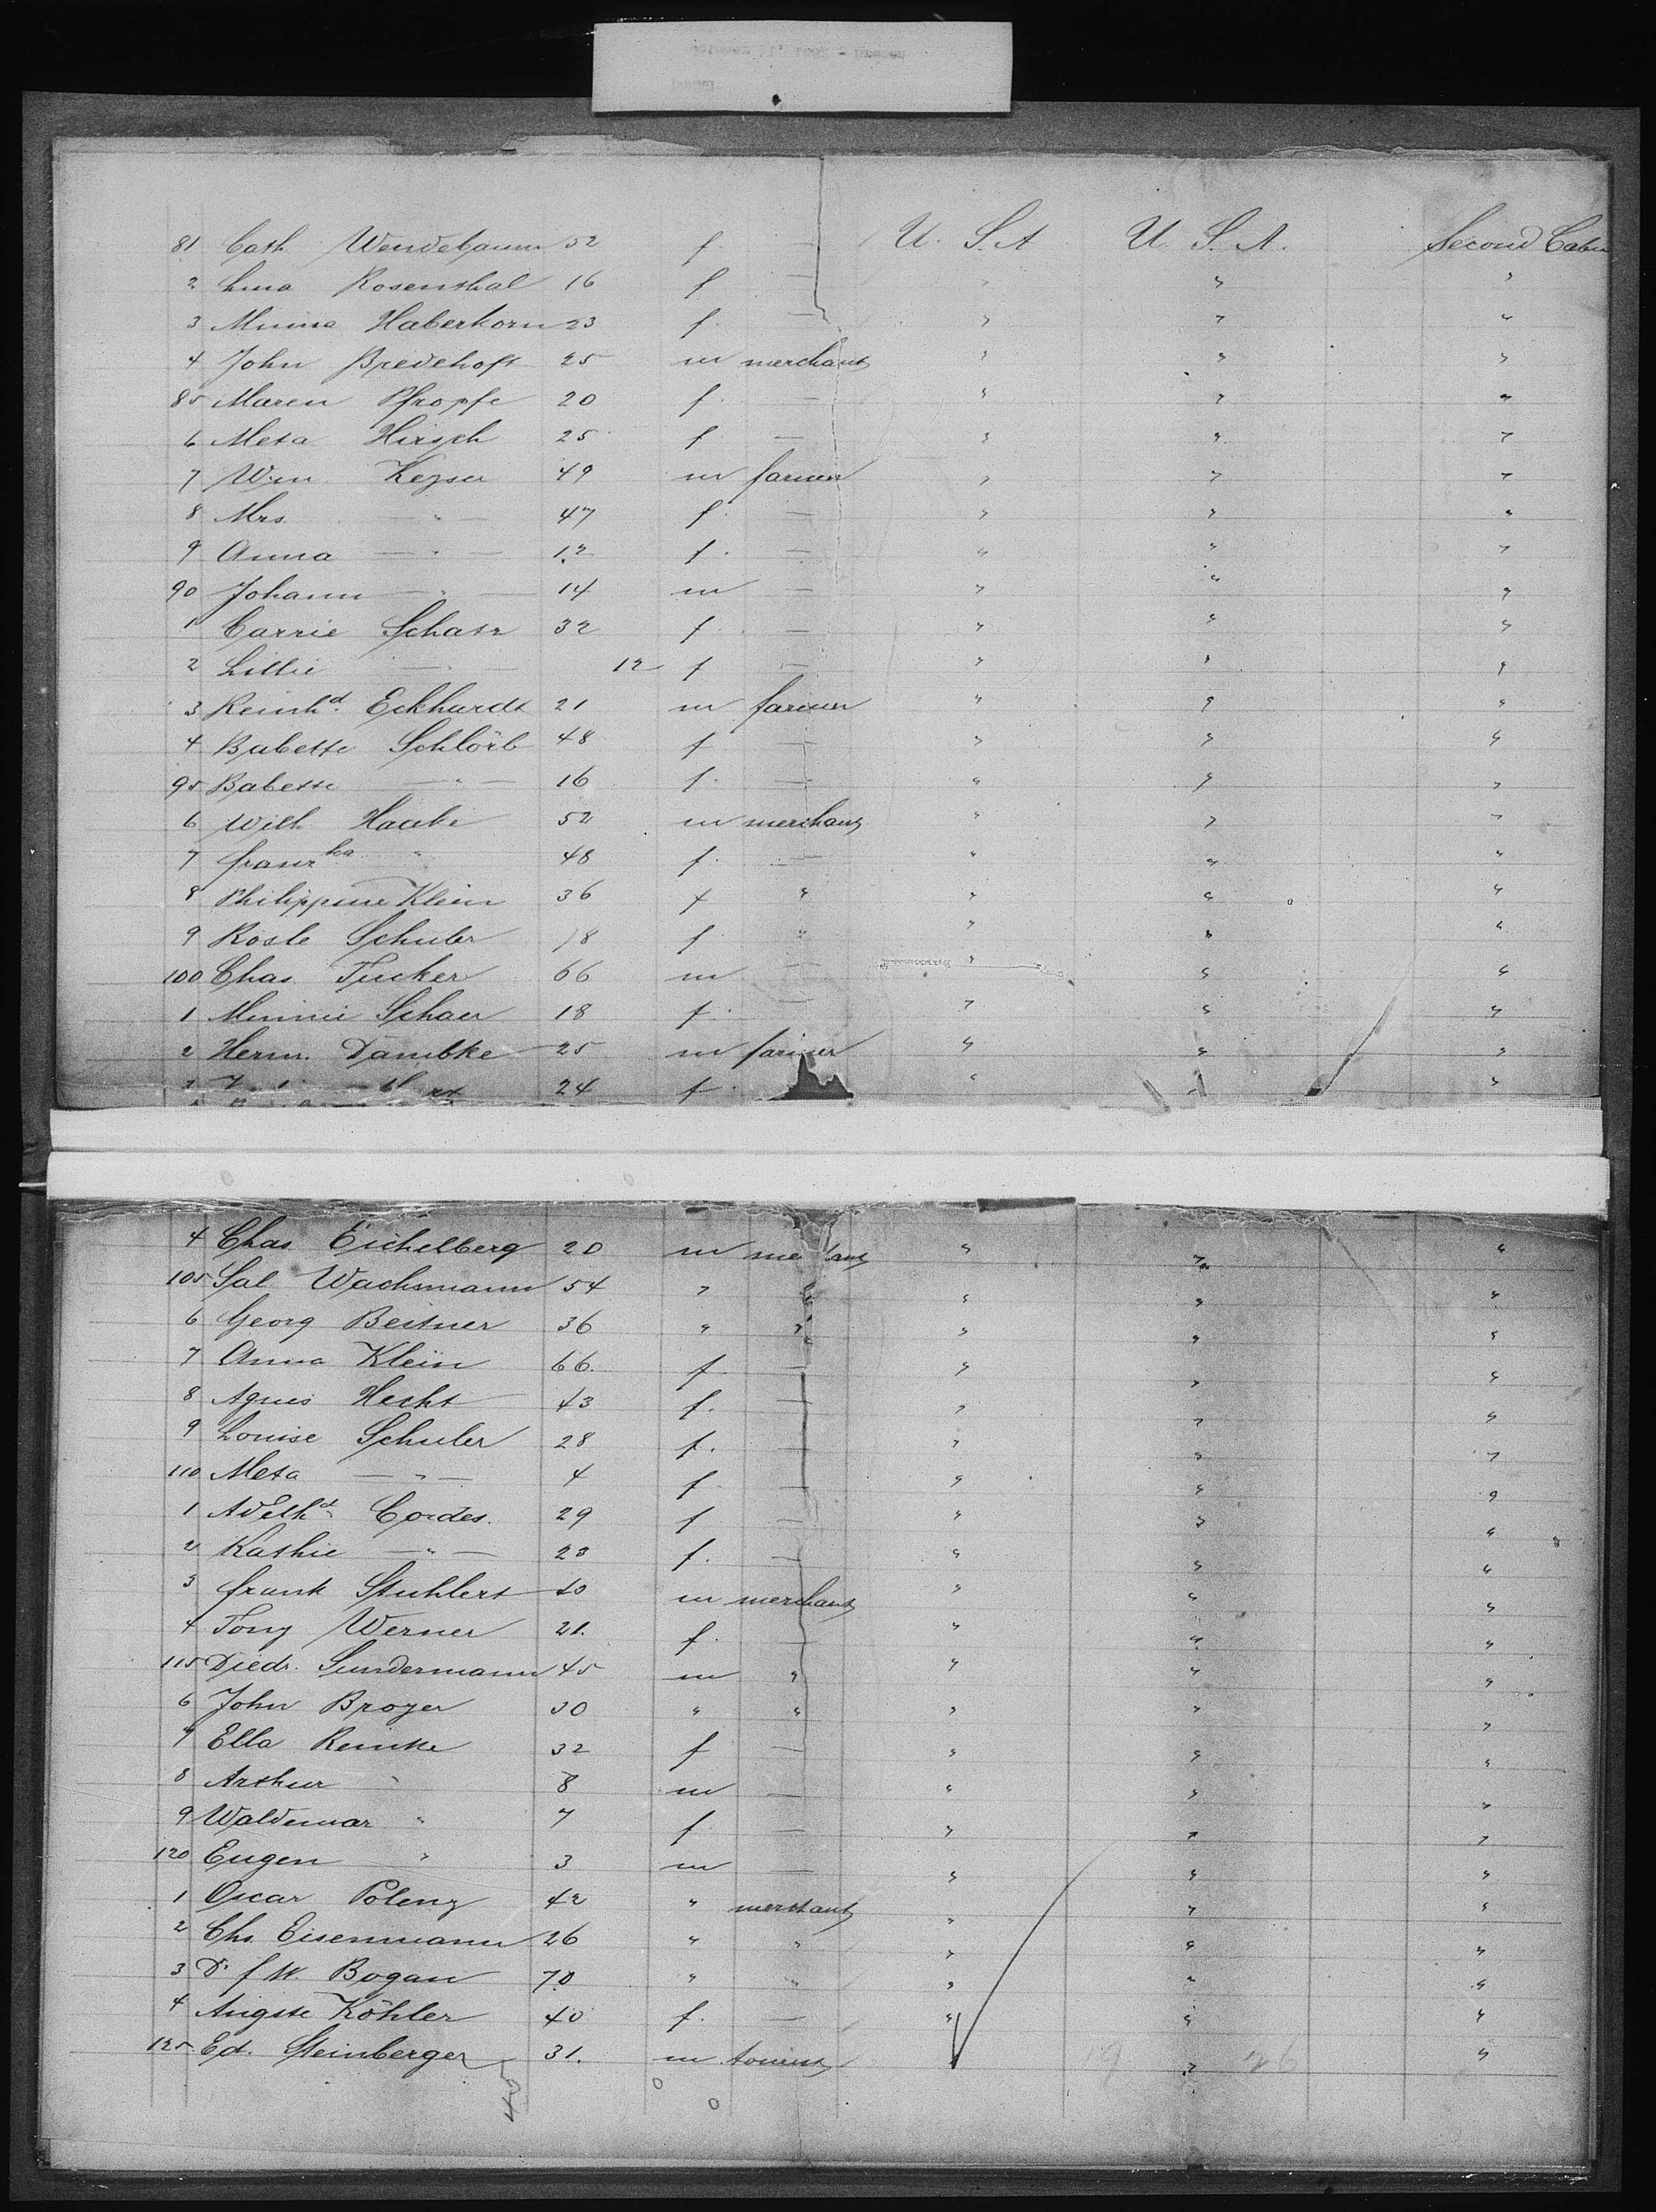 81 Cath Wendebaum 52 f. — U. S. A U. S. A. Second Cabin
2 Lina Rosenthal 16 f — " " "
3 Minna Haberkorn 23 f. — " " "
4 John Bredehoft 25 m merchant " " "
85 Maren Pfropfe 20 f. — " " "
6 Meta Hirsch 25 f — " " "
7 Wm Keyser 49 m farmer " " "
8 Mrs. — " — 47 f. — " " "
9 Anna — " — 12 f. — " " "
90 Johann — " — 14 m — " " "
1 Carrie Schatz 32 f. — " " "
2 Lillie — " — 12 f — " " "
3 Reinhd. Eckhardt 21 m farmer " " "
4 Babette Schlörb 48 f — " " "
95 Babette — " — 16 f. — " " "
6 Wilh Haake 52 m merchant " " "
7 Franzka " 48 f. — " " "
8 Philippine Klein 36 f " " " "
9 Rosle Schuler 18 f " " " "
100 Chas. Tucker 66 m — " " "
1 Minnie Schaer 18 f. — " " "
2 Herm. Dambke 25 m farmer " " "
3 24 f. " "
4 Chas Eichelberg 20 m merchant " " "
105 Sal Wachsmann 54 " " " " "
6 Georg Beitner 36 " " " " "
7 Anna Klein 66. f. — " " "
8 Agnes Hecht 43 f. — " " "
9 Louise Schuler 28 f. — " " "
110 Meta — " — 4 f. — " " "
1 Adelhd Cordes. 29 f — " " "
2 Kathie — " — 23 f. — " " "
3 Frank Stuhlert 40 m merchant " " "
4 Tony Werner 21. f. — " " "
115 Diedr. Sundermann 45 m " " " "
6 John Broyer 30 " " " " "
7 Ella Reinke 32 f — " " "
8 Arthur " 8 m — " " "
9 Waldemar " 7 f — " " "
120 Eugen " 3 m — " " "
1 Oscar Polenz 42 " merchant " " "
2 Chs. Eisenmann 26 " " " " "
3 Dr F. W. Bogan 70 " " " " "
4 Augste Köhler 40 f. — " " "
125 Ed. Steinberger 31. m tourist " " "